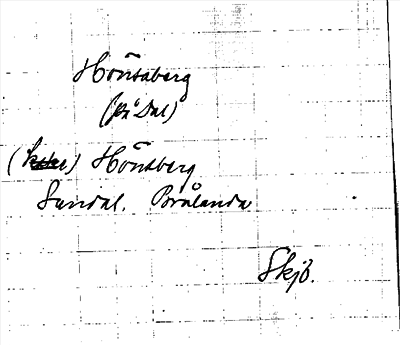 Hönsaberg
(på Dal)
Hönsberg
Sundal. Brålanda
Skjö.